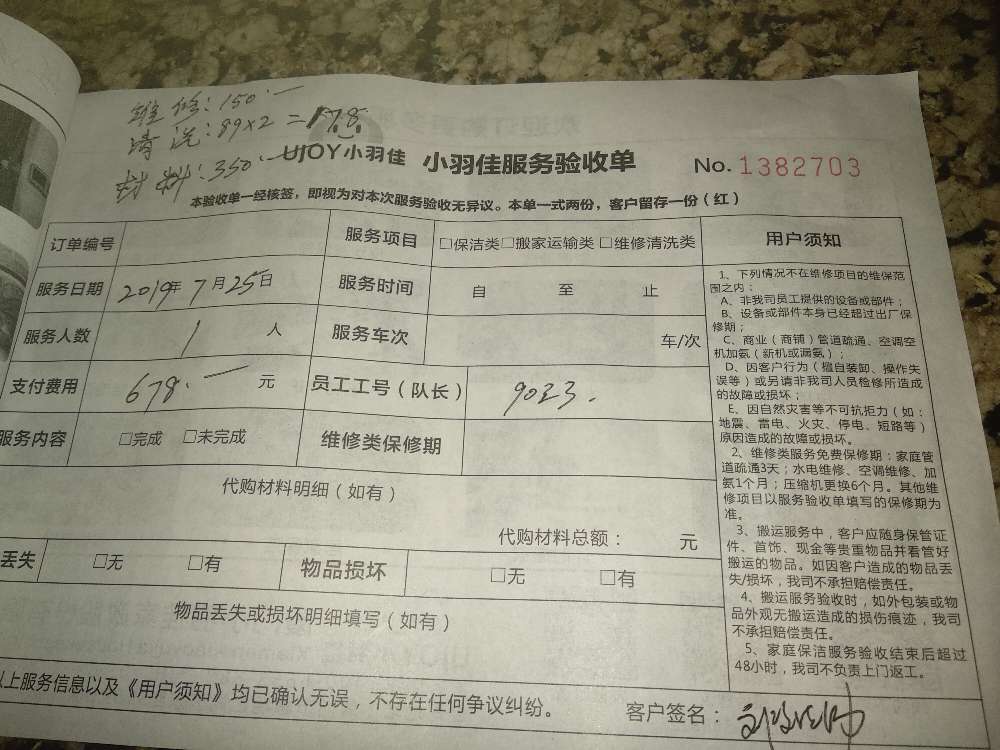 维修：150.一
清洗：89×2 = 178
材料：350.一
UJOY小羽佳 小羽佳服务验收单 No. 1382703
本验收单一经核签，即视为对本次服务验收无异议。本单一式两份，客户留存一份（红）
订单编号 服务项目 □保洁类□搬家运输类 □维修清洗类
服务日期 2019年7月25日 服务时间 自 至 止
服务人数 1 人 服务车次 车/次
支付费用 678.一 元 员工工号（队长） 9023.
服务内容 □完成 □未完成 维修类保修期
代购材料明细（如有）
代购材料总额： 元
丢失 □无 □有 物品损坏 □无 □有
物品丢失或损坏明细填写（如有）
以上服务信息以及《用户须知》均已确认无误，不存在任何争议纠纷。
客户签名：
用户须知
1、下列情况不在维修项目的维保范
围之内：
A、非我司员工提供的设备或部件；
B、设备或部件本身已经超过出厂保
修期；
C、商业（商铺）管道疏通、空调空
机加氨（新机或漏氨）；
D、因客户行为（擅自装卸、操作失
误等）或另请非我司人员检修所造成
的故障或损坏；
E、因自然灾害等不可抗拒力（如：
地震、雷电、火灾、停电、短路等）
原因造成的故障或损坏。
2、维修类服务免费保修期：家庭管
道疏通3天；水电维修、空调维修、加
氨1个月；压缩机更换6个月。其他维
修项目以服务验收单填写的保修期为
准。
3、搬运服务中，客户应随身保管证
件、首饰、现金等贵重物品并看管好
搬运的物品。如因客户造成的物品丢
失/损坏，我司不承担赔偿责任。
4、搬运服务验收时，如外包装或物
品外观无搬运造成的损伤痕迹，我司
不承担赔偿责任。
5、家庭保洁服务验收结束后超过
48小时，我司不负责上门返工。